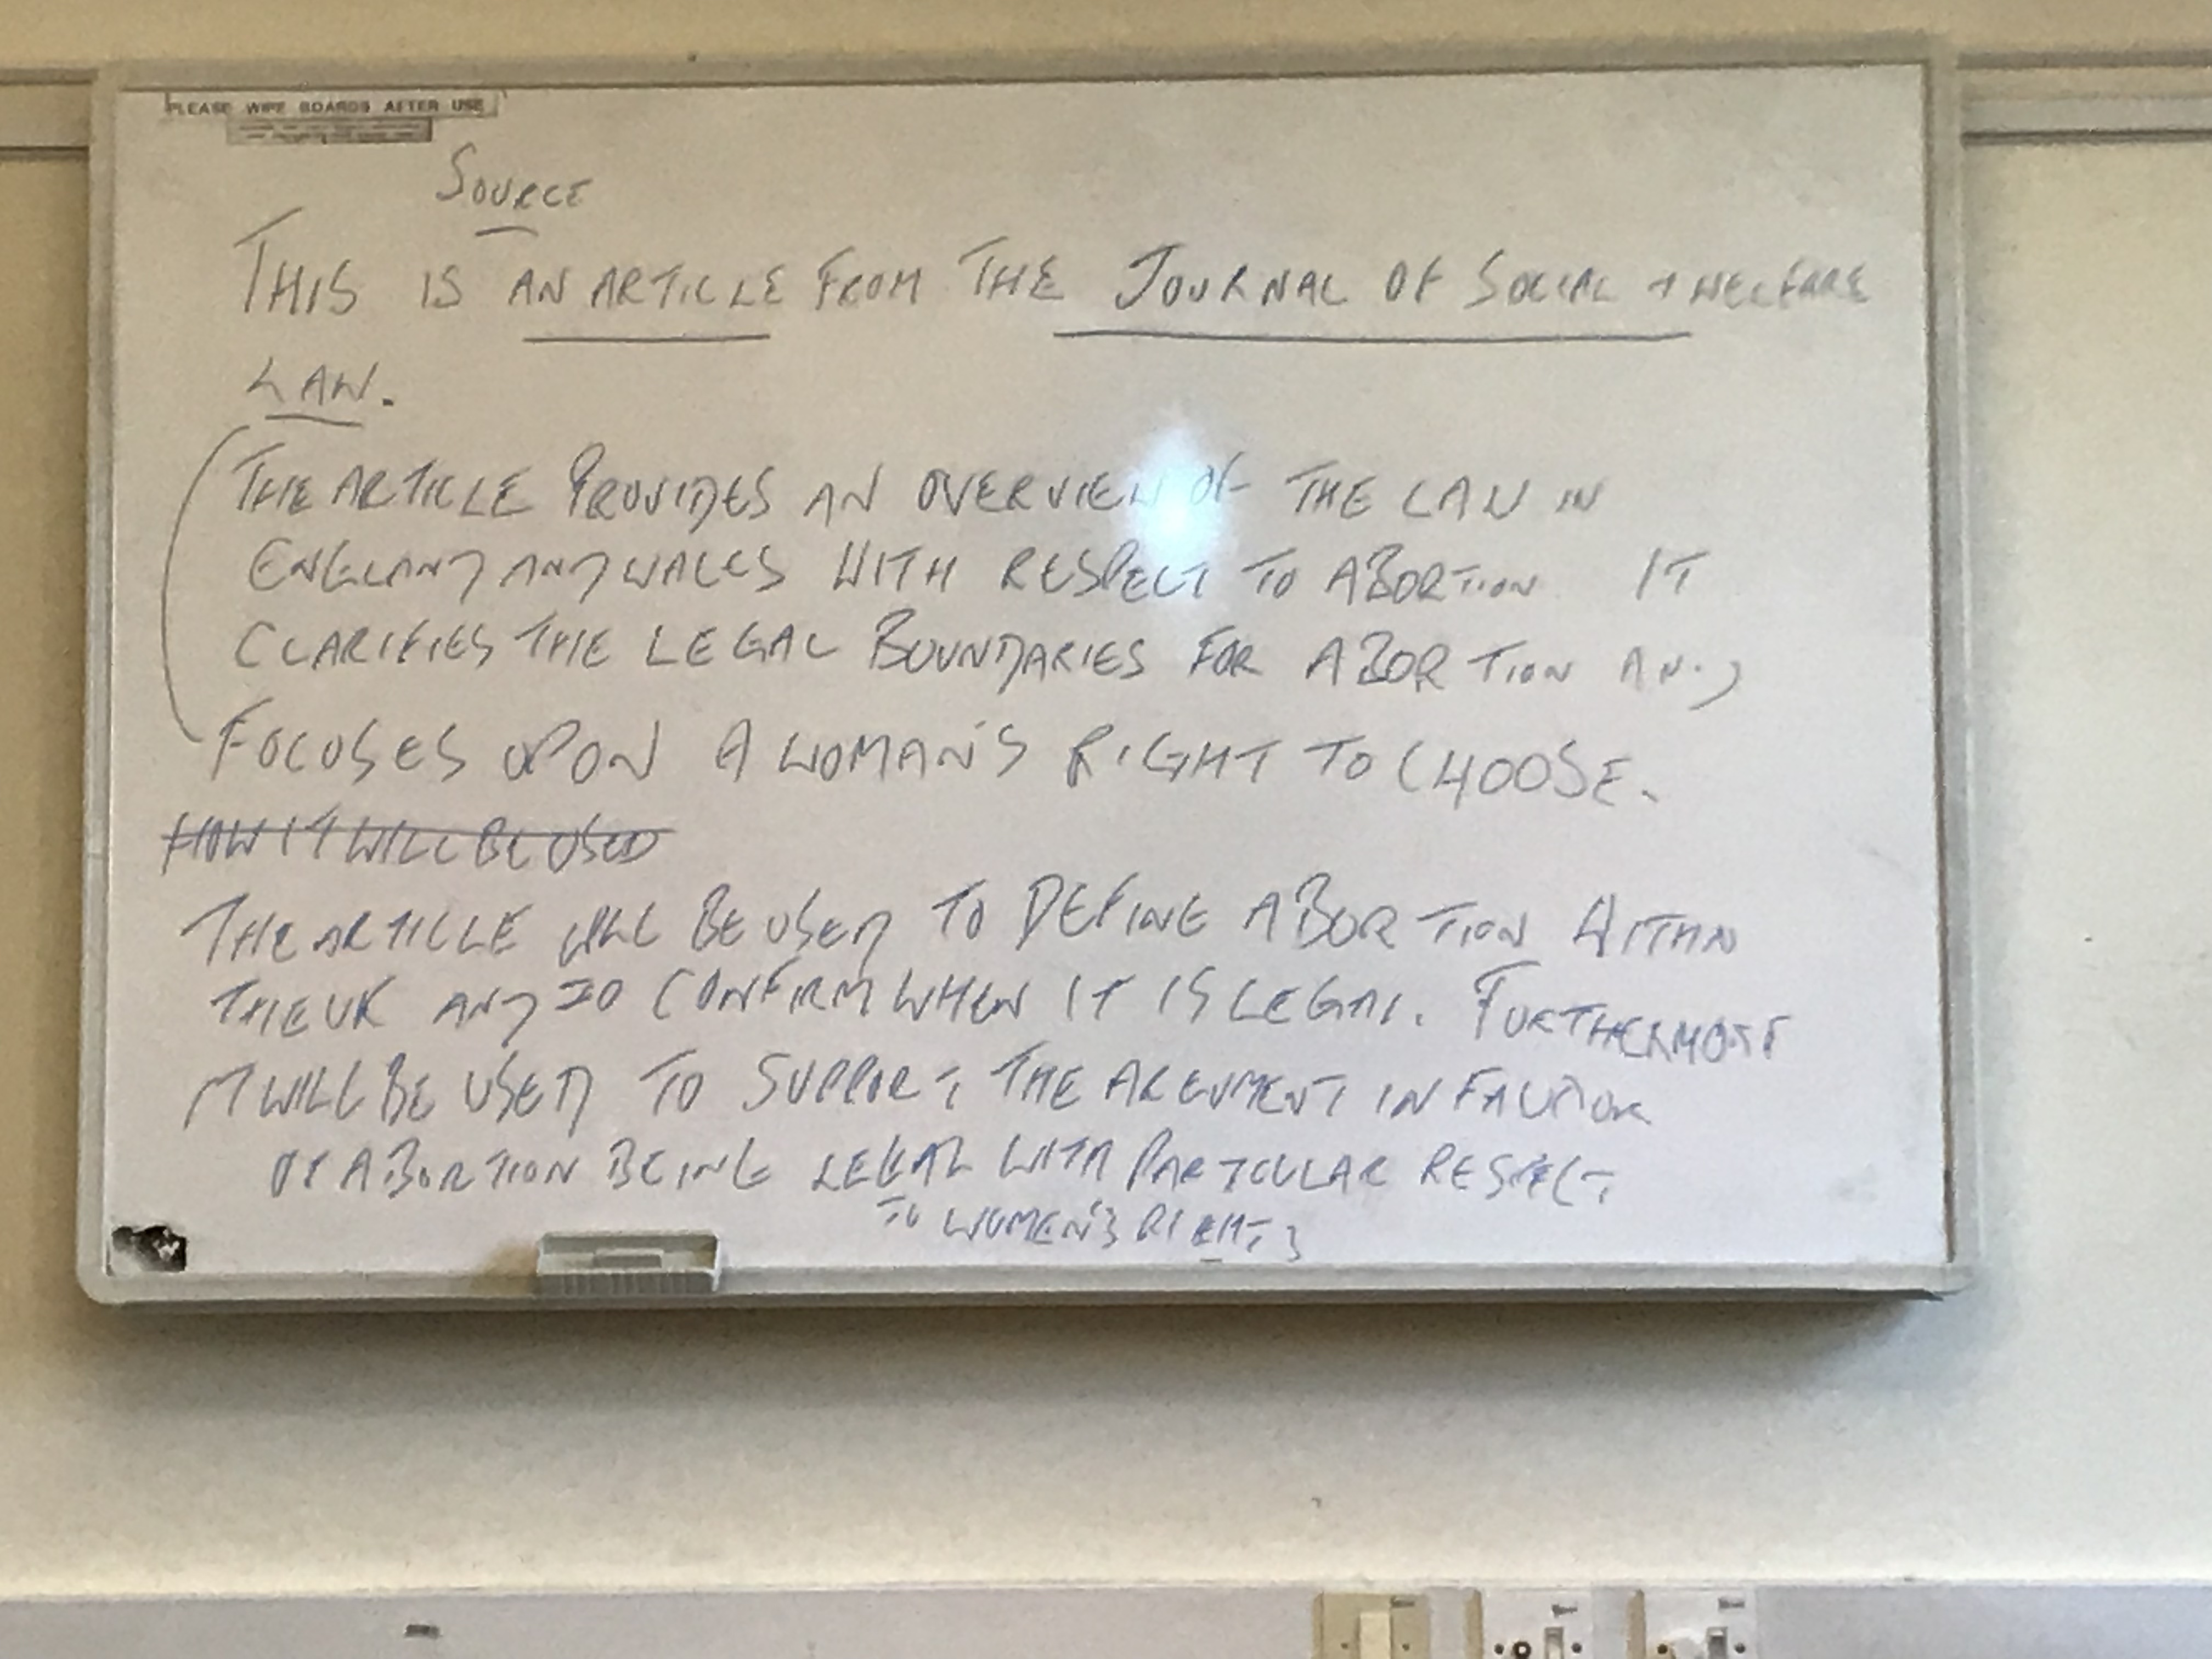 PLEASE WIPE BOARDS AFTER USE
SOURCE
THIS IS AN ARTICLE FROM THE JOURNAL OF SOCIAL + WELFARE
LAW.
THE ARTICLE PROVIDES AN OVERVIEW OF THE LAW IN
ENGLAND AND WALES WITH RESPECT TO ABORTION IT
CLARIFIES THE LEGAL BOUNDARIES FOR ABORTION AND
FOCUSES UPON A WOMAN'S RIGHT TO CHOOSE.
HOW IT WILL BE USED
THE ARTICLE WILL BE USED TO DEFINE ABORTION WITHIN
THE UK AND TO CONFIRM WHEN IT IS LEGAL. FURTHERMORE
IT WILL BE USED TO SUPPORT THE ARGUMENT IN FAVOUR
OF ABORTION BEING LEGAL WITH PARTICULAR RESPECT
TO WOMEN'S RIGHTS